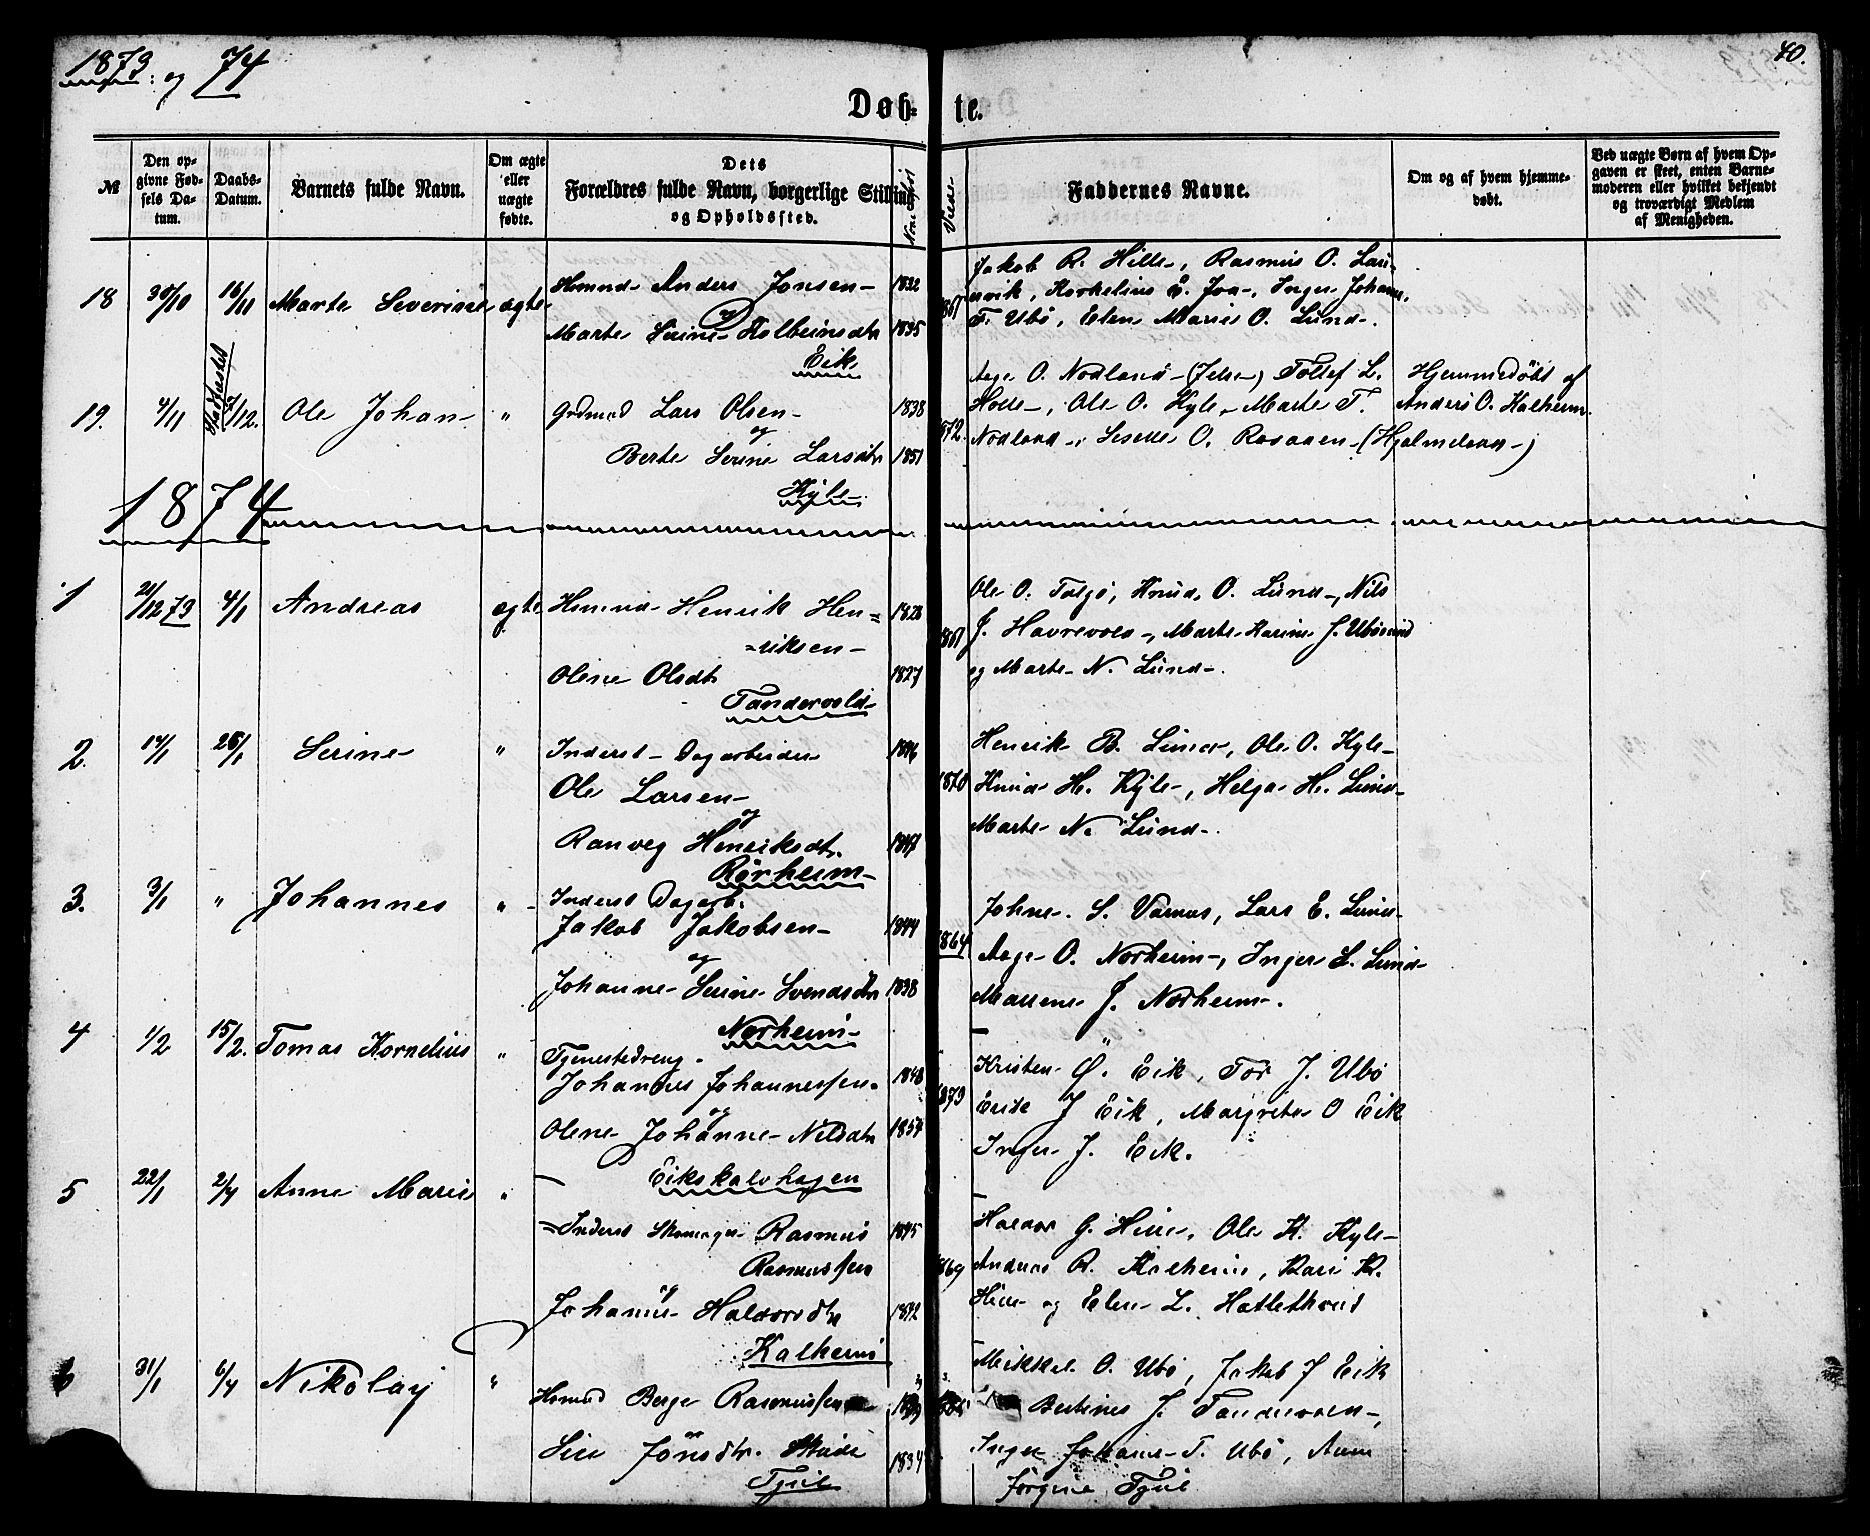 1873 og 74
40.
Døbte.
№
Den opgivne Fødsels Datum.
Daabs-Datum.
Barnets fulde Navn.
Om ægte eller uægte fødte.
Dets Forældres fulde Navn, borgerlige Stilling og Opholdssted.
Faddernes Navne.
Om og af hvem hjemmedøbt.
Ved uægte Børn af hvem Opgaven er skeet, enten Barnemoderen eller hvilket bekjendt og troværdigt Medlem af Menigheden.
18 30/10 16/11 Marte Severine ægte
Hmnd Anders Jonsen 1832
og
Marte Serine Kolbeinsdtr 1835
Eik
Jakob R. Hille, Rasmus O.
Kornelius E. Joa, Inger Johanne
T. Ubø, Elen Marie O. Lund.
19. 4/11 Stadfestet /12. Ole Johan "
Grdmnd Lars Olsen 1838
og
Berte Serine Larsdtr 1851
Kyle
1872.
Aage O. Nodland (Jelse) Tollef L.
Holle, Ole O. Kyle, Marte T.
Nodland, Liselle O. Rosaaen (Hjelmeland)
Hjemmedöbt af
Anders O. Kalheim.
1874
1 21/12 73 4/1 Andreas ægte
Hmnd Henrik Hen=
=riksen 1828
Olene Olsdtr 1827
Tandervold
Ole O. Talgø, Knud O. Lund, Nils
J. Havrevold, Marte Karine J.
og Marte N. Lund.
2. 14/1 25/1 Serine "
Inderst Dagarbeider 1846
Ole Larsen
og
Ranveg Henriksdtr. 1847
Rørheim
1870
Henrik B. Ole O. Kyle
Knud H. Kyle, Helga H. Lund
Marte N. Lund.
3. 3/1 " Johannes "
Inderst Dagarb.
Jakob Jakobsen 1844
og
Johanne Serine Svendsdtr 1838
Norheim
1864
Johne S. Varnes, Lars E. Lund
Aage O. Norheim, Inger L. Lund
Marene J. Norheim.
4 1/2 15/2. Tomas Kornelius "
Tjenestedreng
Johannes Johannessen. 1848
og
Olene Johanne Nilsdtr 1854
Eikskalvhagen
1873
Kristen Ø. Eik, Tor J. Ubø
J Eik, Margrete O Eik
Inger J. Eik.
5 22/1 2/4 Anne Marie "
Inderst Skomager Rasmus 1845
Rasmussen
og
Johanne Halvorsdtr 1842
Kalheim
1869
Halvor G. Hille, Ole K. Kyle
Anders R. Kalheim, Kari R.
Hille og Elen L.
6 31/1 6/4 Nikolay "
Hsmnd Berge Rasmussen
og
Siri Jonsdtr. 1834
Mikkel O. Ubø, Jakob J Eik
Bertines J. Tandervold,
Inger Johanne T. Ubø, Anne
Jørgine